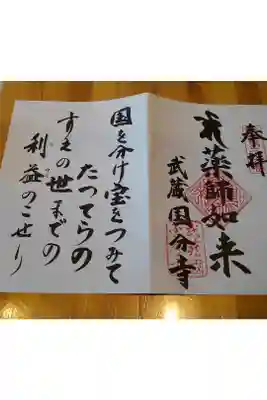 奉拝
薬師如来
武蔵国分寺
国を分け宝をつみて
たつてらの
すえの世までの
利益のこせり